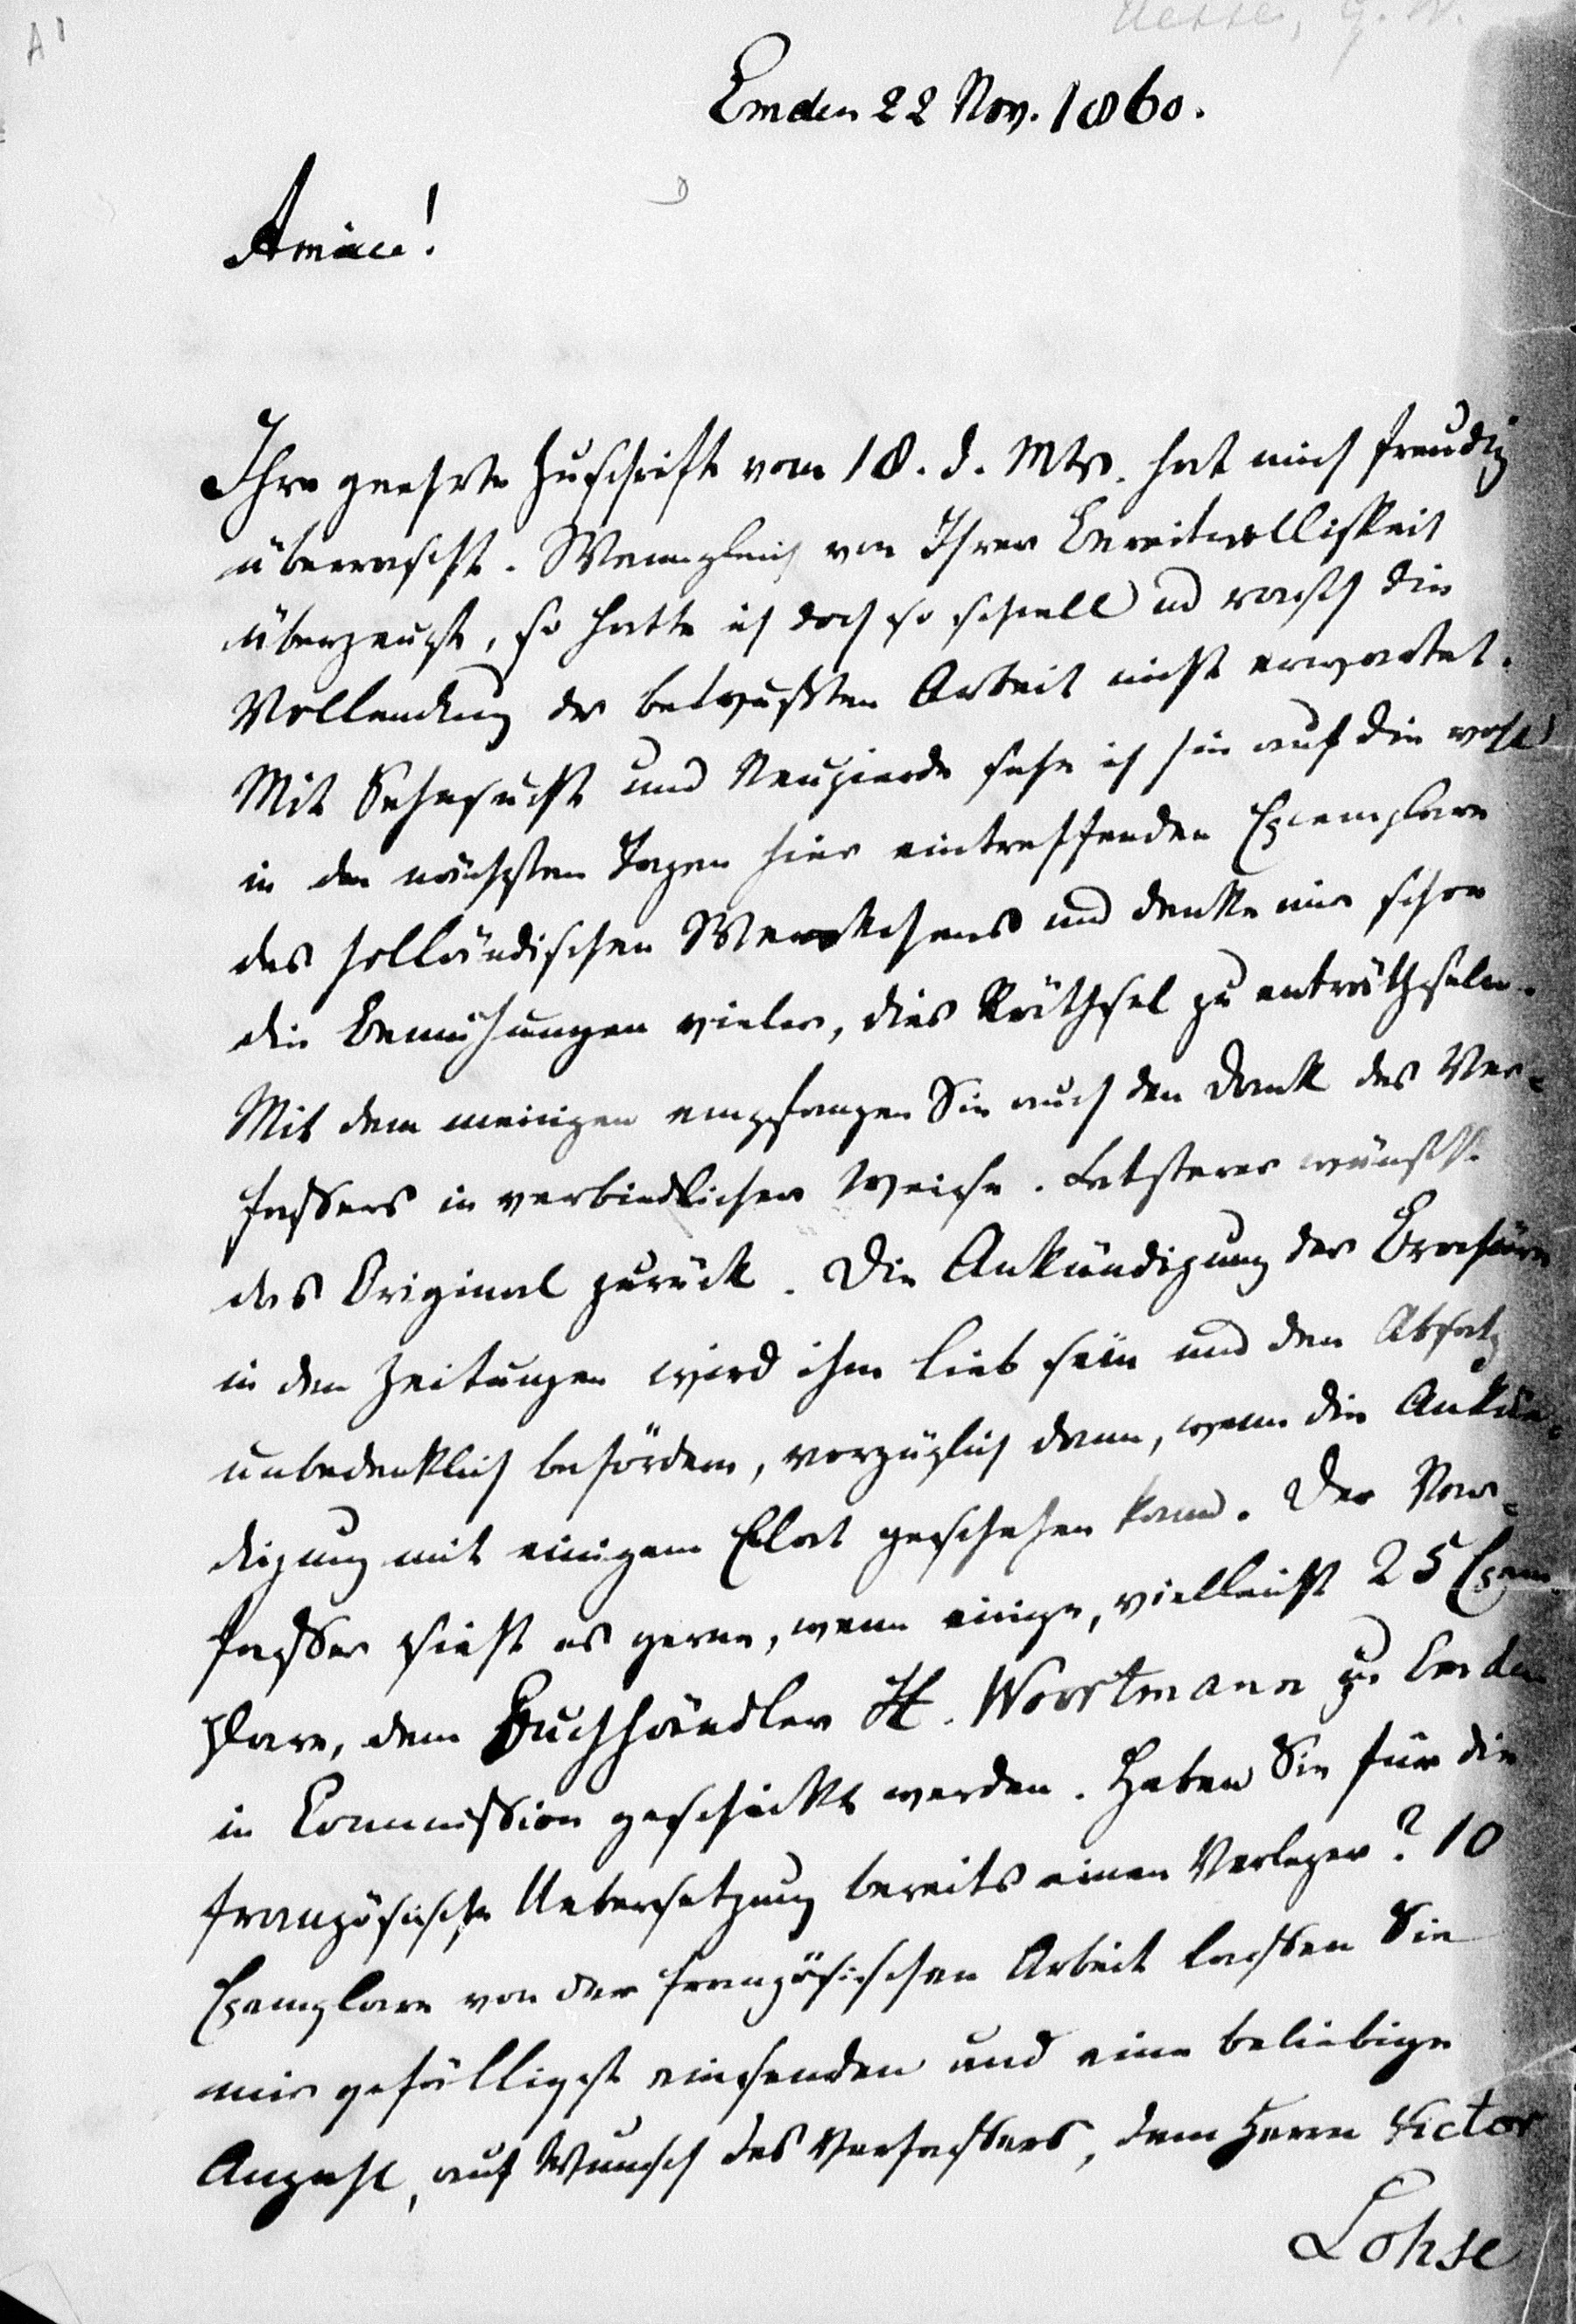 A1
Hesse, G. W.
Emden 22 Nov. 1860.
Amice!
Ihre geehrte Zuschrift vom 18. d. Mts. hat mich freudig
überrascht. Wenngleich von Ihrer Bereitwilligkeit
überzeugt, so hatte ich doch so schnell und rasch die
Vollendung der bewußten Arbeit nicht erwartet.
Mit Sehnsucht und Neugierde sehe ich hin auf die wohl
in den nächsten Tagen hier eintreffenden Exemplare
des holländischen Werkchens und denke mir schon
die Bemühungen vieler, dies Räthsel zu enträthseln.
Mit dem meinigen empfangen Sie auch den Dank des Ver-
fassers in verbindlicher Weise. Letzterer wünscht
das Original zurück. Die Ankündigung der Broschüre
in den Zeitungen wird ihm lieb sein und den Absatz
unbedenklich befördern, vorzüglich dann, wenn die Ankün-
digung mit einigem Eclat geschehen kann. Der Ver-
fasser sieht es gerne, wenn einige, vielleicht 25 Exem-
plare, dem Buchhändler H. Woortmann zu Emden
in Commission geschickt werden. Haben Sie für die
französische Uebersetzung bereits einen Verleger? 10
Exemplare von der französischen Arbeit lassen Sie
mir gefälligst einsenden und eine beliebige
Anzahl, auf Wunsch des Verfassers, dem Herrn Victor
Lohse